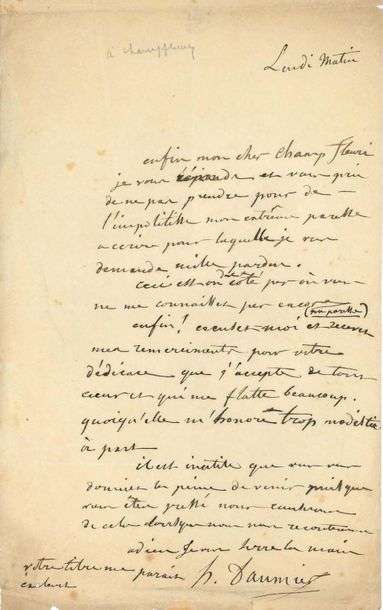 à champfleury
Lundi Matin
enfin mon cher Champ fleuri
je vous réponds et vous prie
de ne pas prendre pour de
l'impolitesse mon extrême paresse
a ecrire pour laquelle je vous
demande mille pardons.
ceci est un coté par où vous
ne me connaissez pas encore (ma paresse)
enfin! excusez-moi et recevez
mes remerciments pour votre
dédicace que j'accepte de tout
cœur et qui me flatte beaucoup.
quoiqu'elle m'honore trop modestie
à part
il est inutile que vous vous
donniez la peine de venir puisque
vous être pressé nous causerons
de cela lorsque nous nous
adieu je vous serre la main
h. Daumier
votre titre me
parait